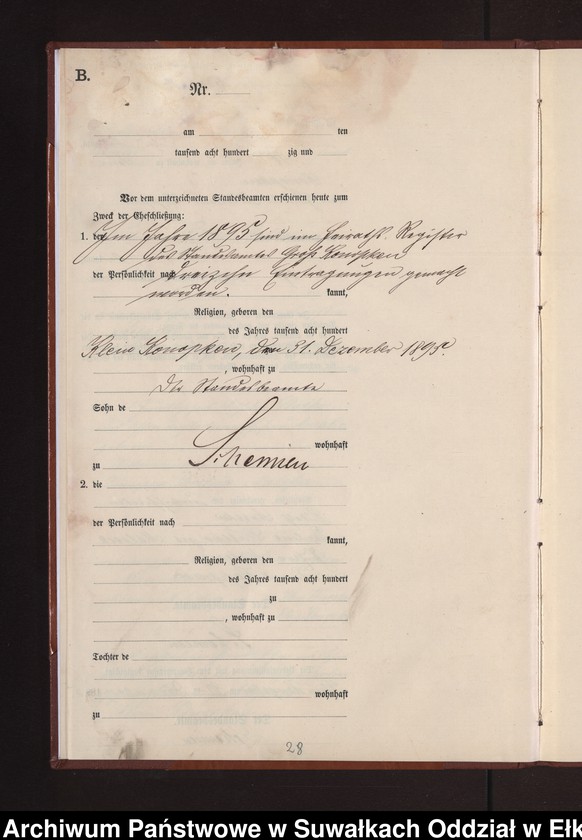 B.
Nr.
am ten
tausend acht hundert zig und
Vor dem unterzeichneten Standesbeamten erschienen heute zum
Zweck der Eheschließung:
1. der
Im Jahre 1895 sind im Heirats-Register
des Standesamtes Groß Konopken
der Persönlichkeit nach
dreizehn Eintragungen gemacht
worden.
kannt,
Religion, geboren den
des Jahres tausend acht hundert
Klein Konopken, den 31. Dezember 1895.
, wohnhaft zu
Der Standesbeamte
Sohn de
wohnhaft
zu
2. die
der Persönlichkeit nach
kannt,
Religion, geboren den
des Jahres tausend acht hundert
zu
, wohnhaft zu
Tochter de
wohnhaft
zu
28
Archiwum Państwowe w Suwałkach Oddział w Ełk